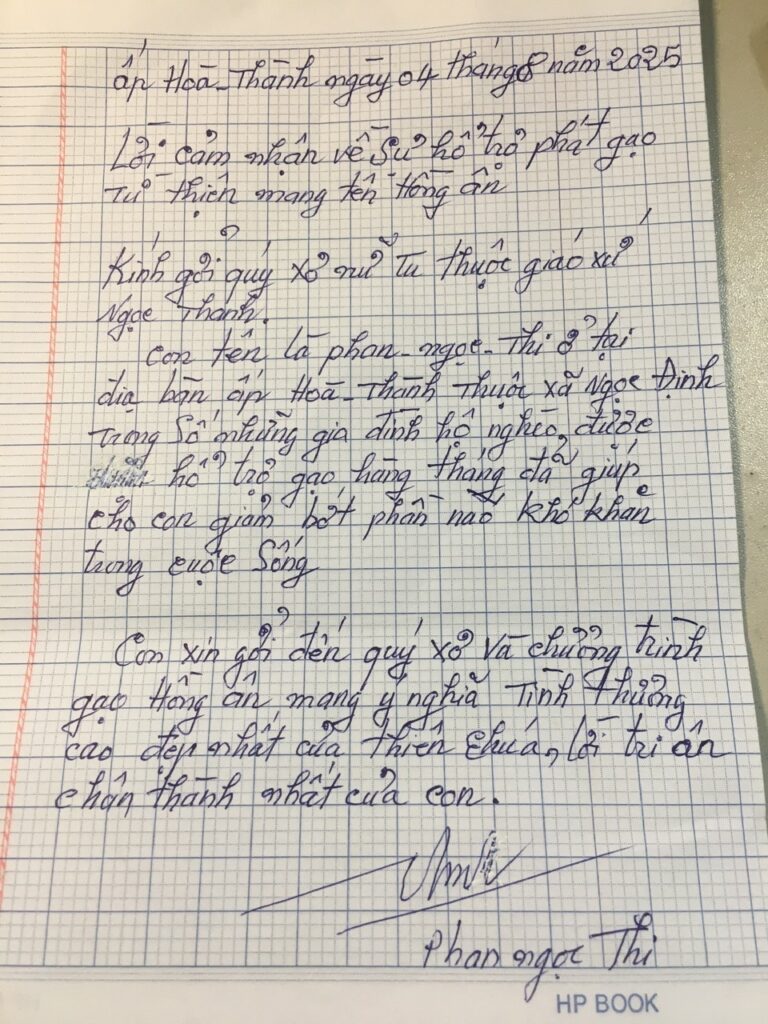 ấp Hoà-Thành ngày 04 tháng 8 năm 2025
Lời cảm nhận về sự hổ trợ phát gạo
từ thiện mang tên Hồng ân
Kính gởi quý xơ nữ tu thuộc giáo xứ
Ngọc Thanh.
Con tên là phan-ngọc-Thi ở tại
địa bàn ấp Hoà-Thành Thuộc xã Ngọc Định
trong số những gia đình hộ nghèo, được
hổ trợ gạo hàng tháng đã giúp
cho con giảm bớt phần nào khó khăn
trong cuộc sống
Con xin gởi đến quý xơ và chương trình
gạo Hồng ân mang ý nghĩa Tình thương
cao đẹp nhất của thiên chúa, Lời tri ân
chân thành nhất của con.
Phan ngọc Thi
HP BOOK